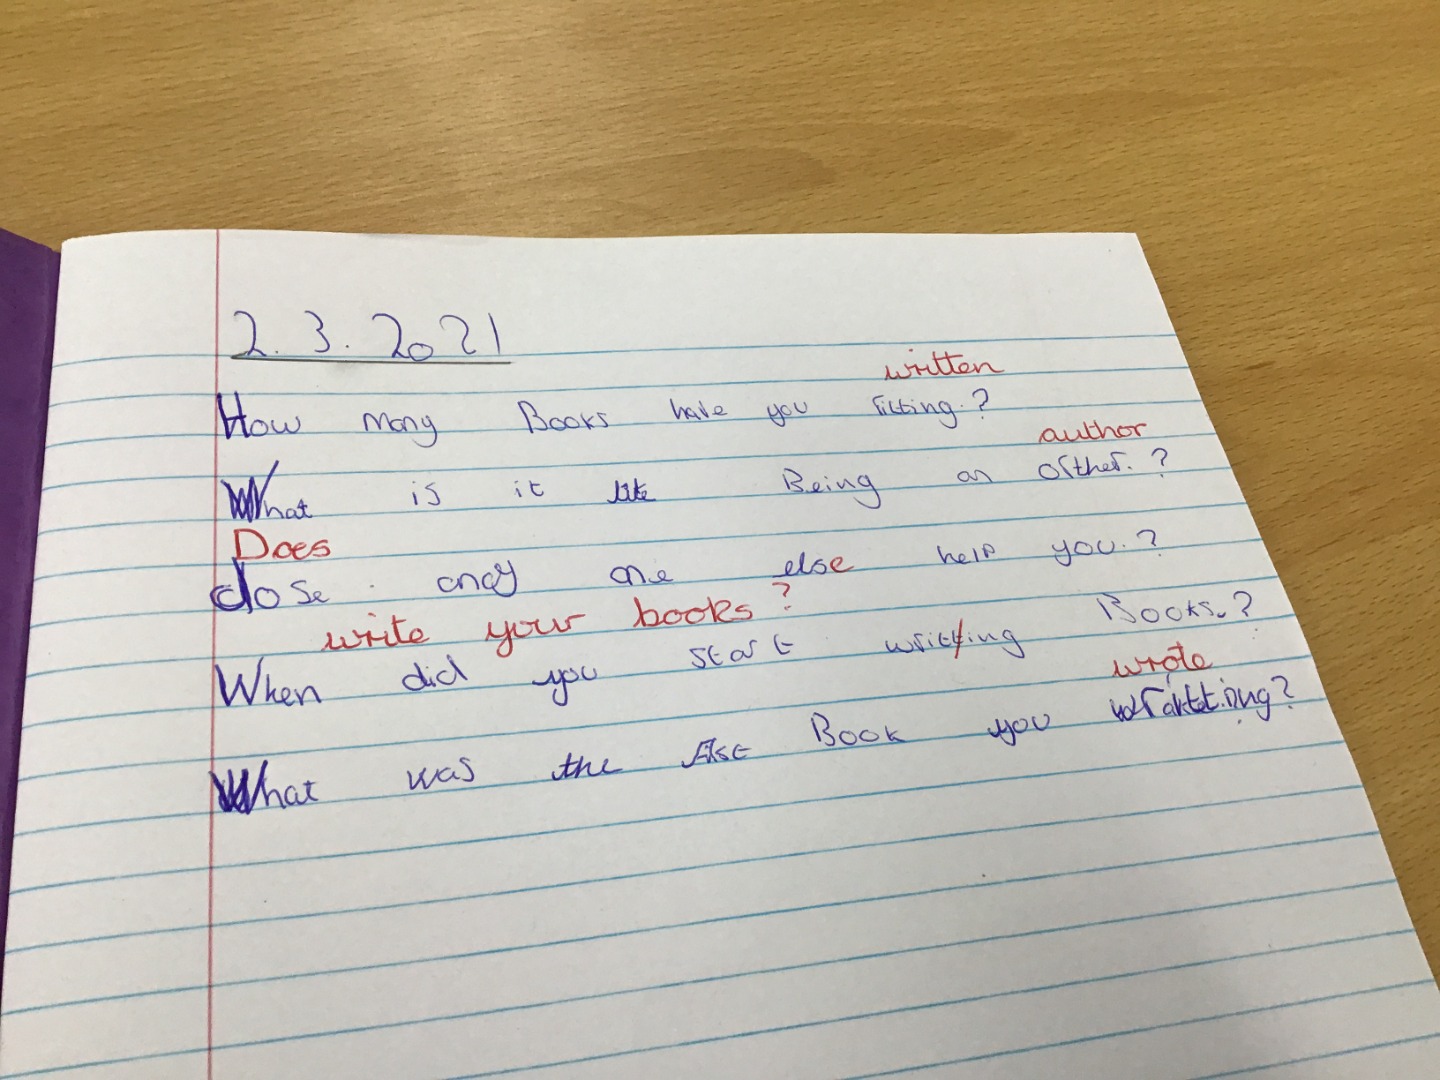 2.3.2021
written
How many Books have you ritting.?
author
What is it like Being an orther.?
Does
dose. eney one else help you.?
write your books?
When did you start writting Books.?
wrote
What was the Book you